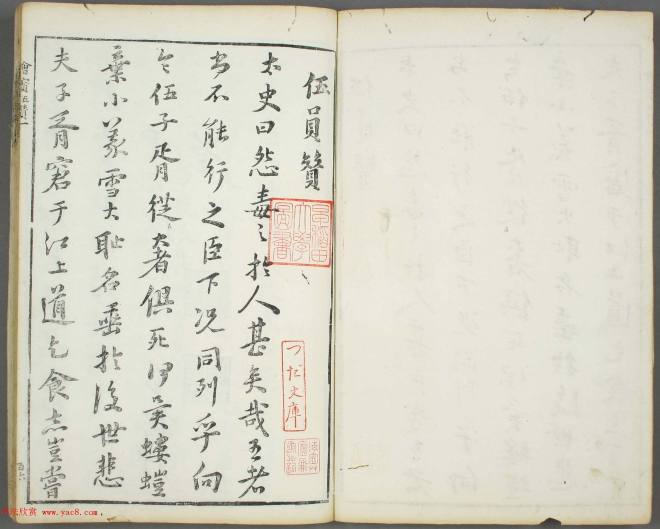 伍員贊
太史曰怨毒之於人甚矣哉王者
尚不能行之臣下况同列乎向
令伍子胥從奢俱死何異螻螘
棄小義雪大恥名垂於後世悲
夫子胥窘于江上道乞食志豈嘗
早稲田大學圖書
文庫
www.yac8.com